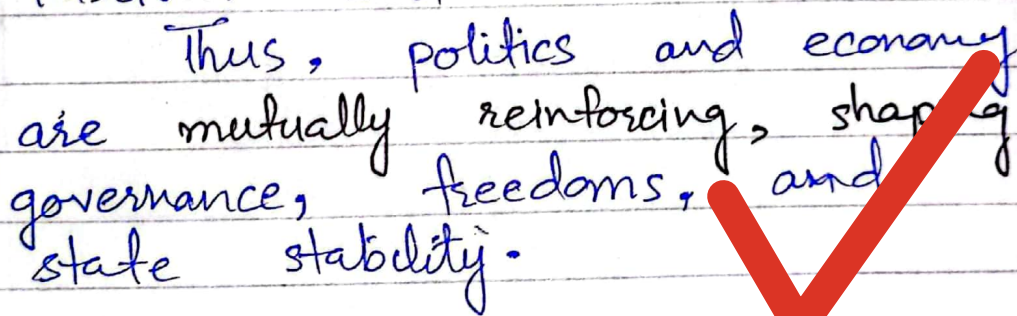 Thus, politics and economy
are mutually reinforcing, shaping
governance, freedoms, and
state stability.